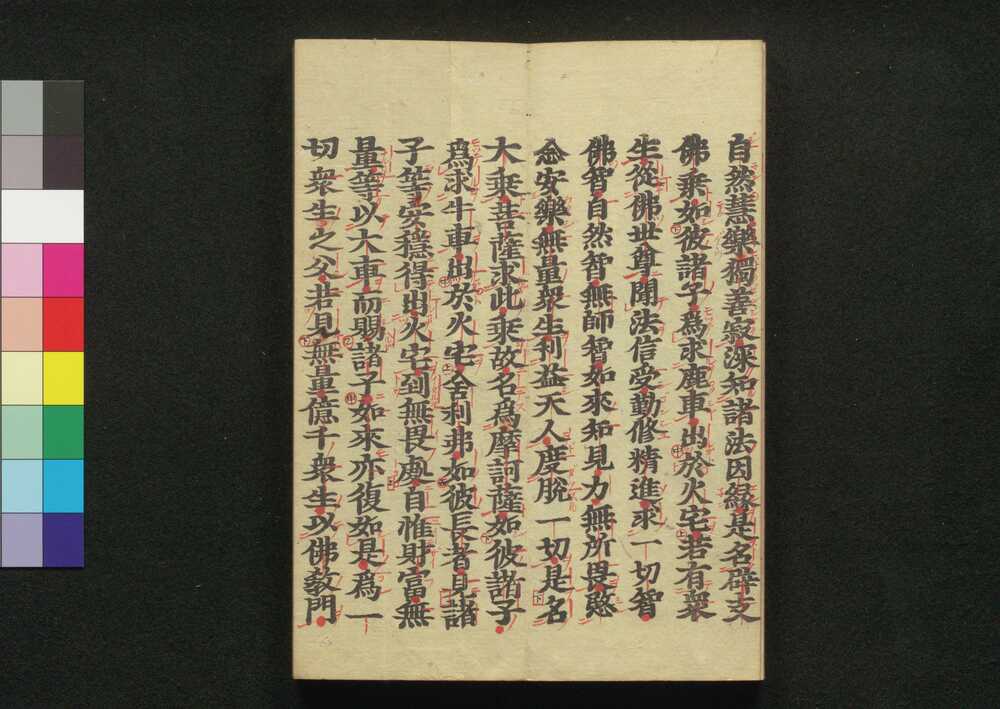 自然慧樂獨善寂深知諸法因縁是名辟支
佛乘如彼諸子爲求鹿車出於火宅若有衆
生從佛世尊聞法信受勤修精進求一切智
佛智自然智無師智如來知見力無所畏愍
念安樂無量衆生利益天人度脫一切是名
大乘菩薩求此乘故名爲摩訶薩如彼諸子
爲求牛車出於火宅舍利弗如彼長者見諸
子等安穩得出火宅到無畏處自惟財富無
量等以大車而賜諸子如來亦復如是爲一
切衆生之父若見無量億千衆生以佛教門